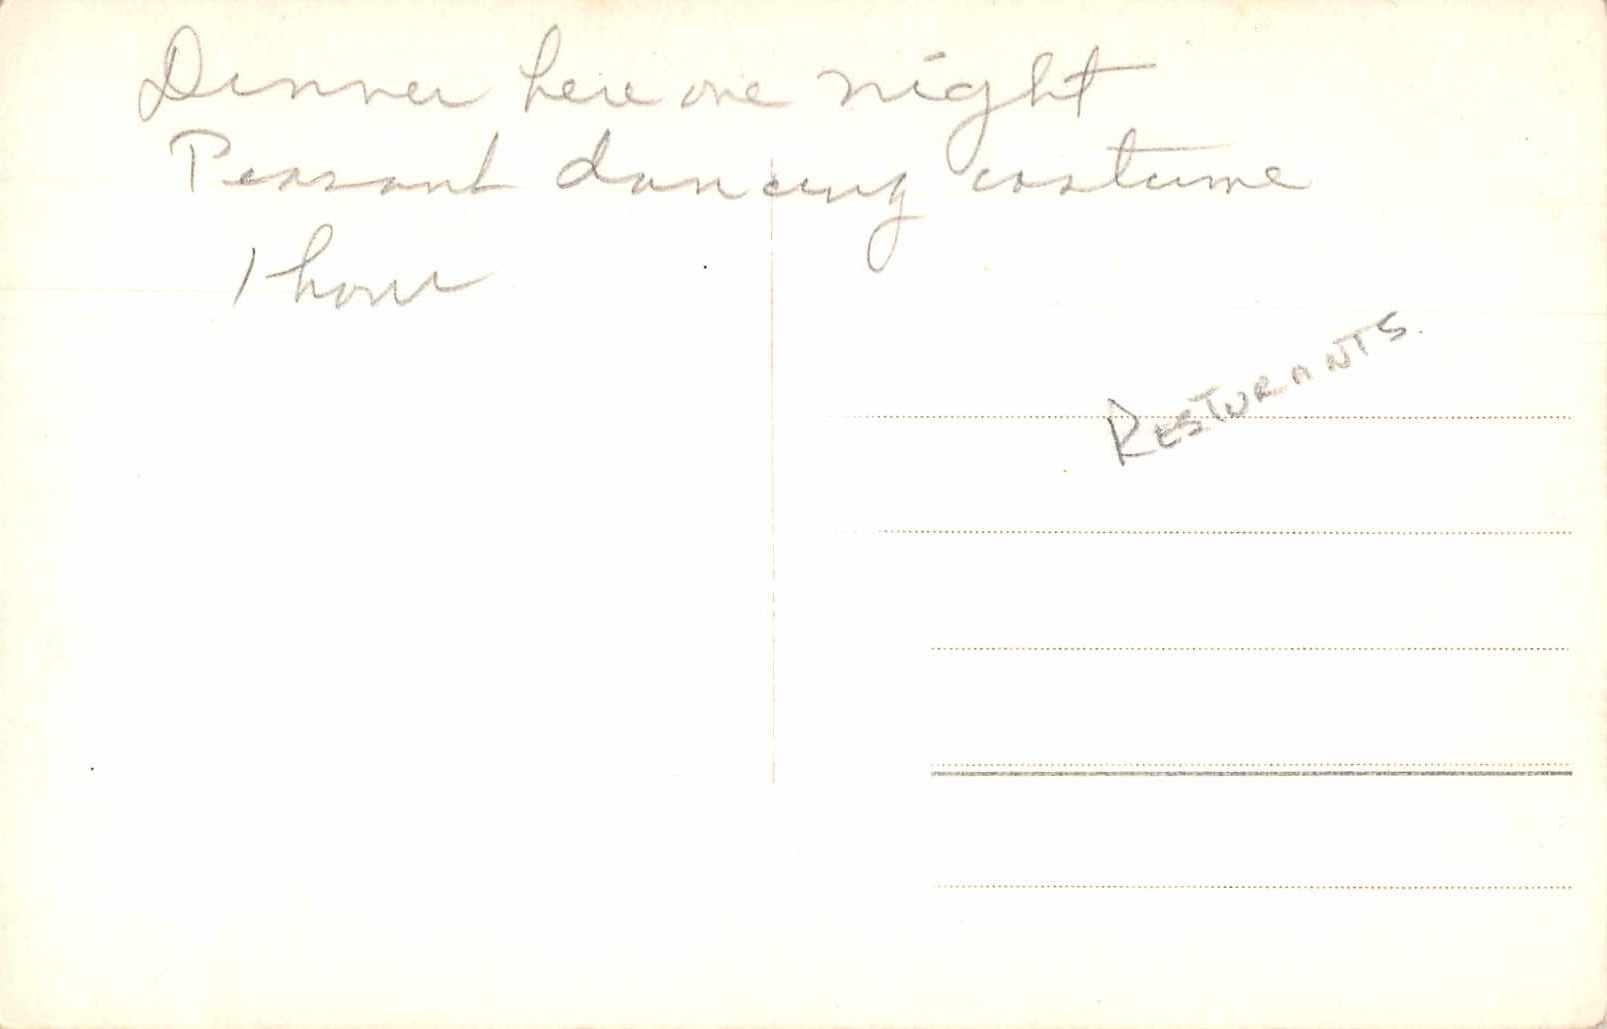 Dinner here one night
Peasant dancing costume
1 hour
RESTURANTS.